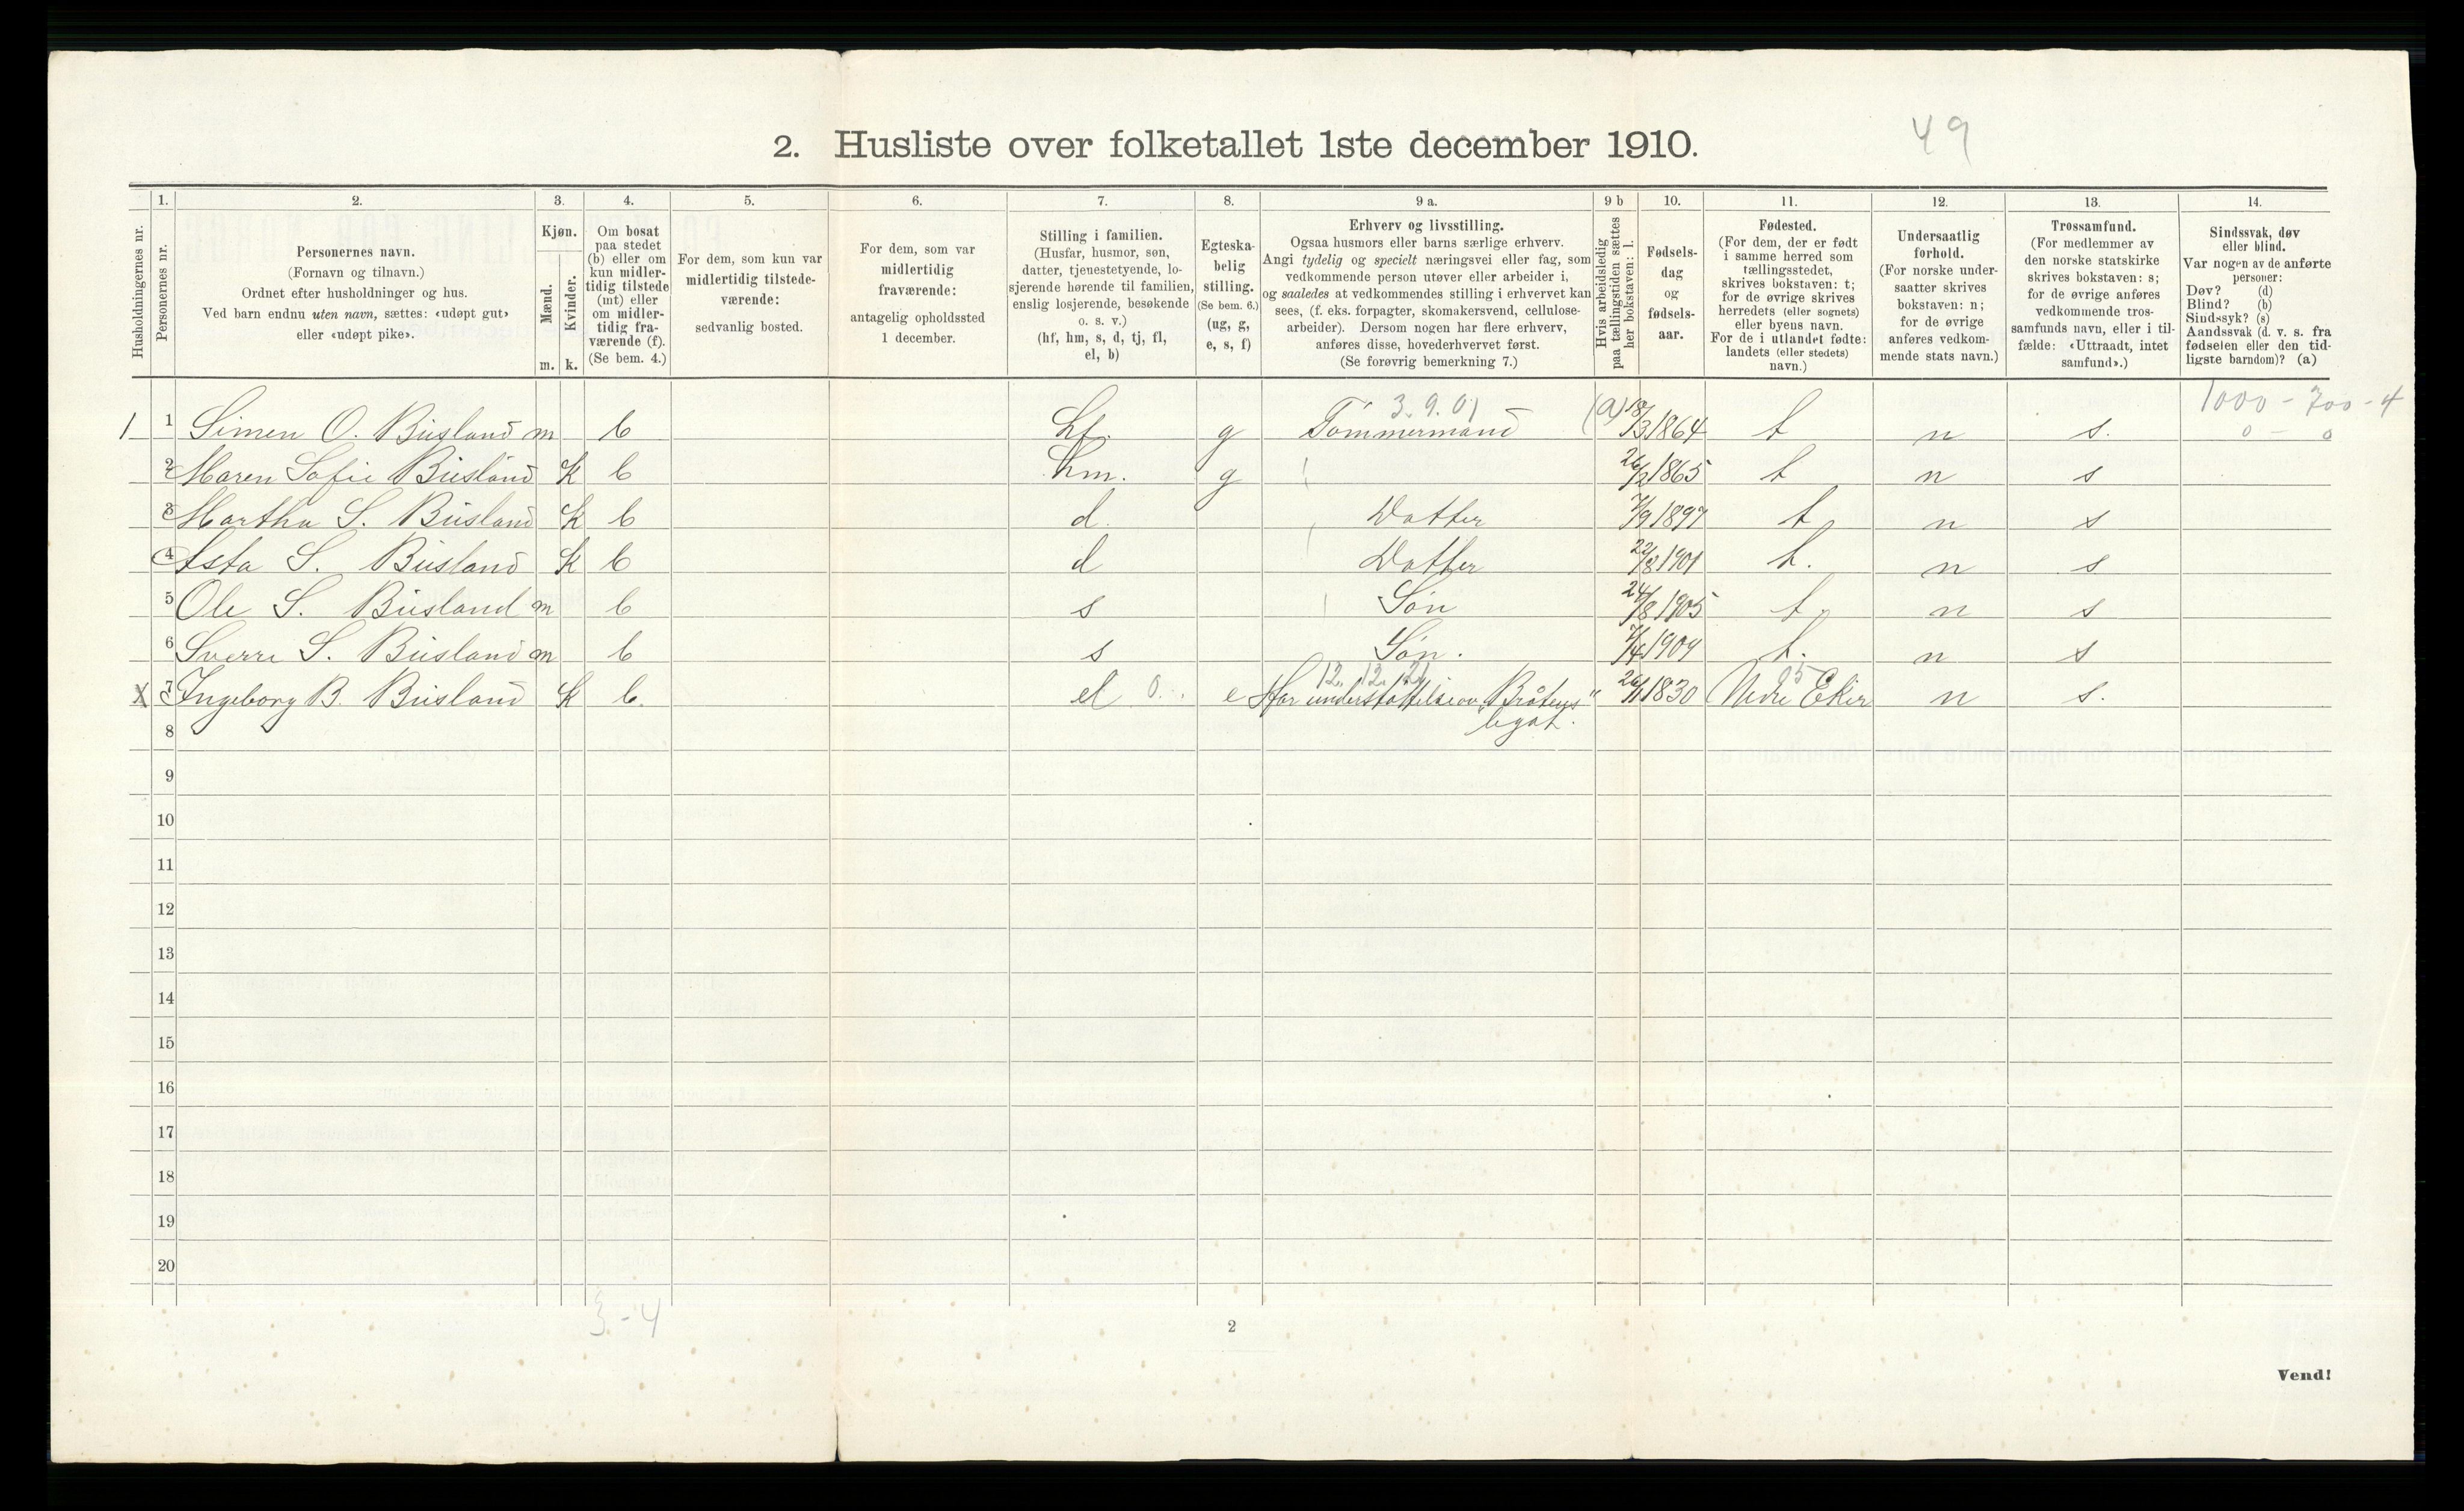 2. Husliste over folketallet 1ste december 1910.
49
Husholdningernes nr.
1. Personernes nr.
2. Personernes navn.
(Fornavn og tilnavn.)
Ordnet efter husholdninger og hus.
Ved barn endnu uten navn, sættes: «udøpt gut»
eller «udøpt pike».
3. Kjøn.
Mænd. m.
Kvinder. k.
4. Om bosat
paa stedet
(b) eller om
kun midler-
tidig tilstede
(mt) eller
om midler-
tidig fra-
værende (f).
(Se bem. 4.)
5. For dem, som kun var
midlertidig tilstede-
værende:
sedvanlig bosted.
6. For dem, som var
midlertidig
fraværende:
antagelig opholdssted
1 december.
7. Stilling i familien.
(Husfar, husmor, søn,
datter, tjenestetyende, lo-
sjerende hørende til familien,
enslig losjerende, besøkende
o. s. v.)
(hf, hm, s, d, tj, fl,
el, b)
8. Egteska-
belig
stilling.
(Se bem. 6.)
(ug, g,
e, s, f)
9 a. Erhverv og livsstilling.
Ogsaa husmors eller barns særlige erhverv.
Angi tydelig og specielt næringsvei eller fag, som
vedkommende person utøver eller arbeider i,
og saaledes at vedkommendes stilling i erhvervet kan
sees, (f. eks. forpagter, skomakersvend, cellulose-
arbeider). Dersom nogen har flere erhverv,
anføres disse, hovederhvervet først.
(Se forøvrig bemerkning 7.)
9 b Hvis arbeidsledig
paa tællingstiden sættes
her bokstaven: l.
10. Fødsels-
dag
og
fødsels-
aar.
11. Fødested.
(For dem, der er født
i samme herred som
tællingsstedet,
skrives bokstaven: t;
for de øvrige skrives
herredets (eller sognets)
eller byens navn.
For de i utlandet fødte:
landets (eller stedets)
navn.)
12. Undersaatlig
forhold.
(For norske under-
saatter skrives
bokstaven: n;
for de øvrige
anføres vedkom-
mende stats navn.)
13. Trossamfund.
(For medlemmer av
den norske statskirke
skrives bokstaven: s;
for de øvrige anføres
vedkommende tros-
samfunds navn, eller i til-
fælde: «Uttraadt, intet
samfund».)
14. Sindssvak, døv
eller blind.
Var nogen av de anførte
personer:
Døv? (d)
Blind? (b)
Sindssyk? (s)
Aandssvak (d. v. s. fra
fødselen eller den tid-
ligste barndom)? (a)
3.9.01 (a) 1000 - 700 - 4
1 1 Simen O. Busland m b hf. g Tømmermand 18/3 1864 t n s. 0 - 0
2 Maren Sofie Busland k b hm. g 26/2 1865 t n s
3 Martha S. Busland k b d. Datter 7/9 1897 t n s
4 Asta S. Busland k b d Datter 22/8 1901 t. n s
5 Ole S. Busland m b s Søn 24/8 1905 t n s
6 Sverre S. Busland m b s Søn. 7/4 1909 t. n s
12. 12. 21 05
x 7 Ingeborg B. Busland k b. el 0. e Har understøttelse av "Bråtens" 26/1 1830 Nedre Eker n s.
legat.
8
9
10
11
12
13
14
15
16
17
18
19
20
3.-4
2
Vend!